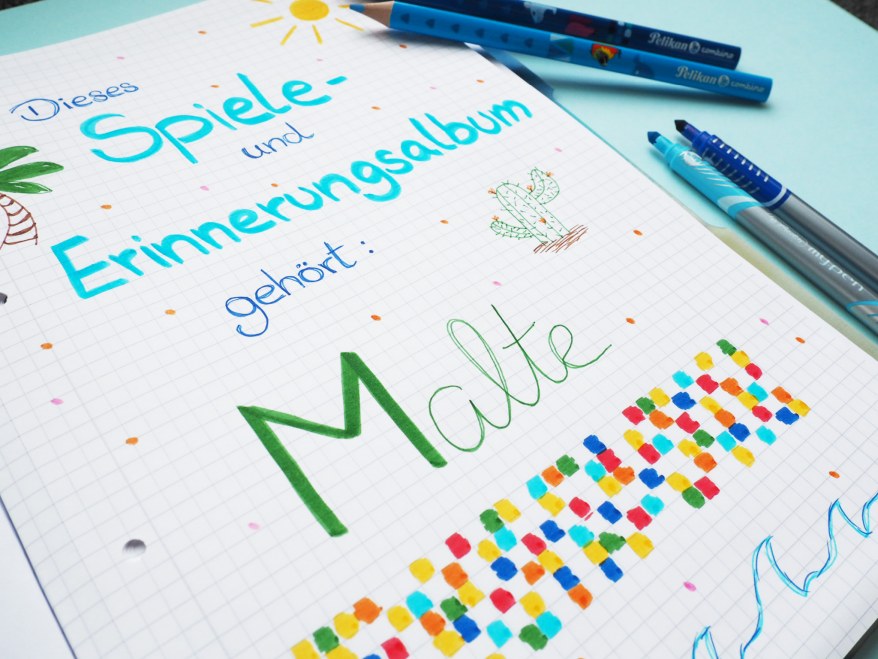 Dieses
Spiele-
und
Erinnerungsalbum
gehört:
Malte
Pelikan combino
Pelikan combino